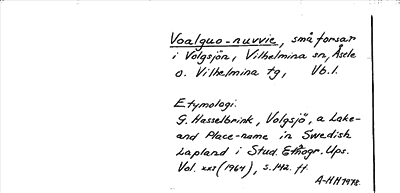 Voalguo-nuvvie, små forsar
i Volgsjön, Vilhelmina sn, Åsele
o. Vilhelmina tg, Vb.l.
Etymologi.
G. Hasselbrink, Volgsjö, a Lake-
and Place-name in Swedish
Lapland i Stud. Ethogr. Ups.
Vol. XXI (1964), s. 142. ff.
A-HH 1978.